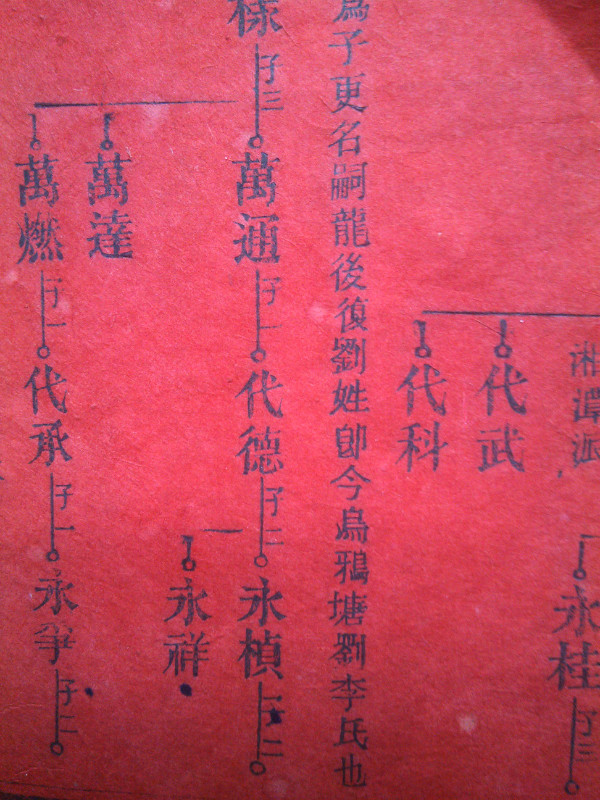 湘潭派
永桂
子三
代武
代科
爲子更名嗣龍後復劉姓卽今烏鴉塘劉李氏也
子三
萬通
子一
代德
子二
永楨
子二
永祥
萬達
萬燃
子一
代承
子一
永爭
子二